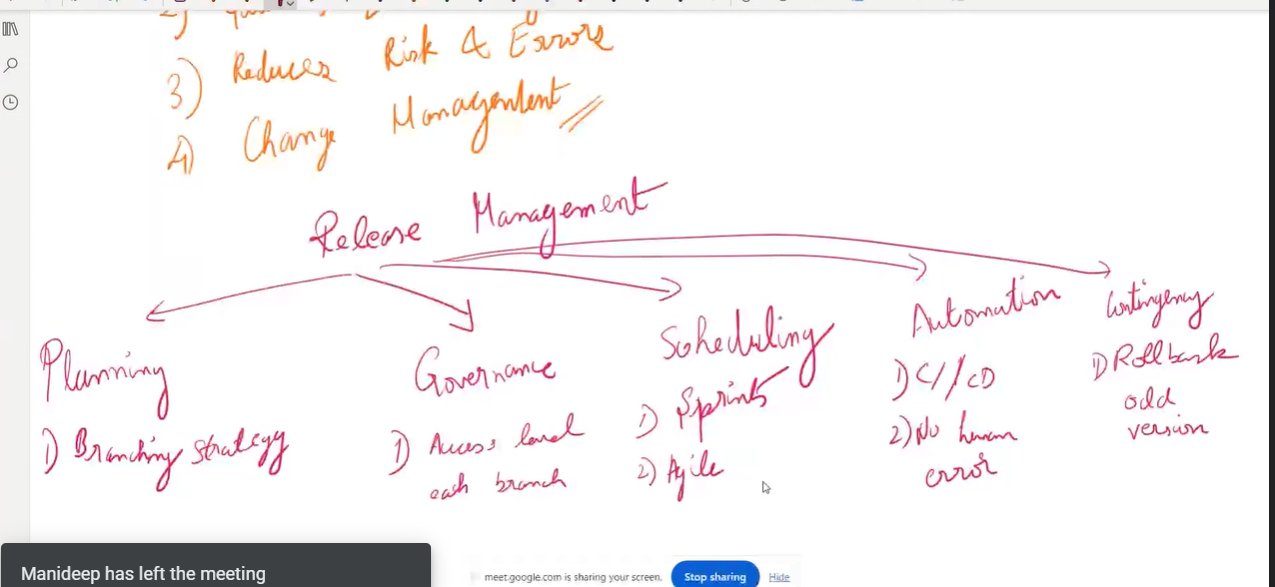 2)
3) Reduces Risk & Errors
4) Change Management
Release Management
Planning
1) Branching strategy
Governance
1) Access level
each branch
Scheduling
1) Sprints
2) Agile
Automation
1) CI/CD
2) No human
error
Contingency
1) Rollback
odd
version
Manideep has left the meeting
meet.google.com is sharing your screen.
Stop sharing
Hide